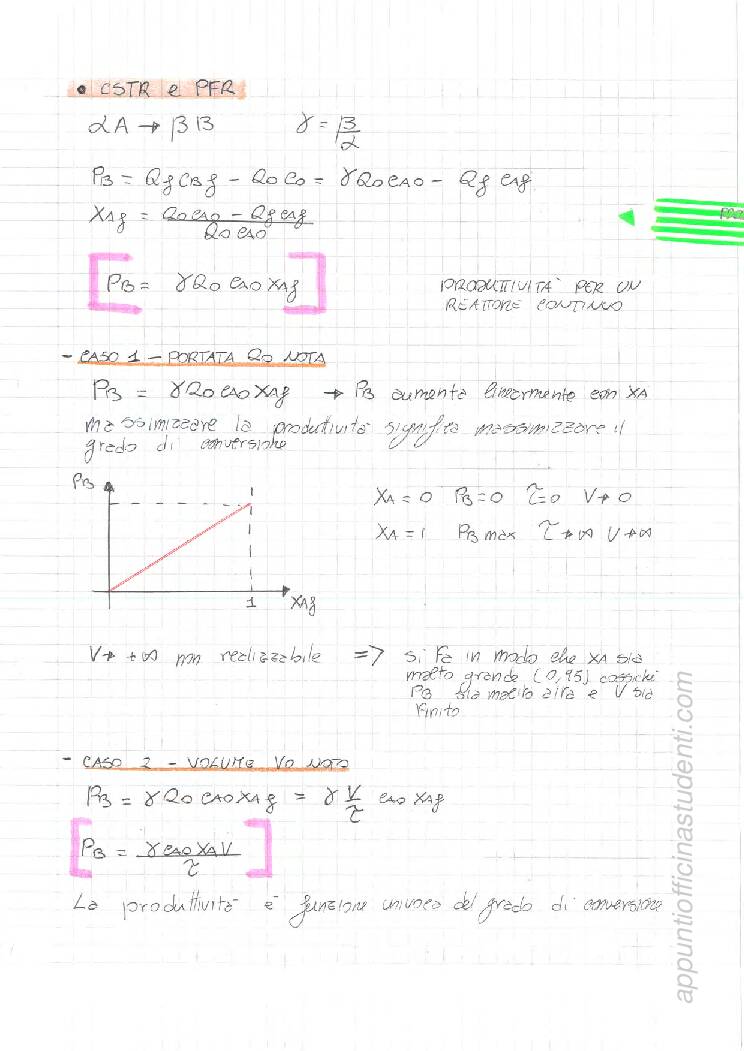 • CSTR e PFR
αA → βB γ = β/α
PB = Qf CBf - Q0 C0 = γ Q0 CA0 - Qf CAf
XAf = Q0 CA0 - Qf CAf / Q0 CA0
[PB = γ Q0 CA0 XAf]
PRODUTTIVITÀ PER UN
REATTORE CONTINUO
- CASO 1 - PORTATA Q0 NOTA
PB = γ Q0 CA0 XAf → PB aumenta linearmente con XA
massimizzare la produttività significa massimizzare il
grado di conversione
PB
1
XAf
XA = 0 PB = 0 τ = 0 V → 0
XA = 1 PB max τ → ∞ V → ∞
V → +∞ non realizzabile => si fa in modo che XA sia
molto grande (0,95) cosicché
PB sia molto alta e V sia
finito
- CASO 2 - VOLUME V0 NOTO
PB = γ Q0 CA0 XAf = γ V/τ CA0 XAf
[PB = γ CA0 XA V / τ]
La produttività è funzione univoca del grado di conversione
appuntiofficinastudenti.com